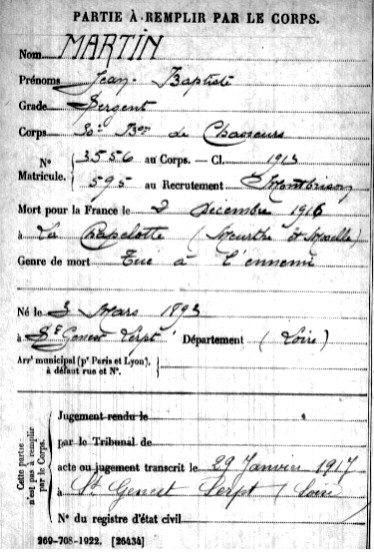 PARTIE À REMPLIR PAR LE CORPS.
Nom MARTIN
Prénoms Jean-Baptiste
Grade Sergent
Corps 30e Bon de Chasseurs
N° Matricule. 3556 au Corps. — Cl. 1913
595 au Recrutement Montbrison
Mort pour la France le 2 décembre 1916
à La Chapelotte (Meurthe et Moselle)
Genre de mort Tué à l'ennemi
Né le 3 Mars 1893
à St Genest Lerpt Département (Loire)
Arrt municipal (pr Paris et Lyon),
à défaut rue et N°.
Cette partie
n'est pas à remplir
par le Corps.
Jugement rendu le
par le Tribunal de
acte ou jugement transcrit le 29 Janvier 1917
à St Genest Lerpt (Loire)
N° du registre d'état civil
269-708-1922. [26434]